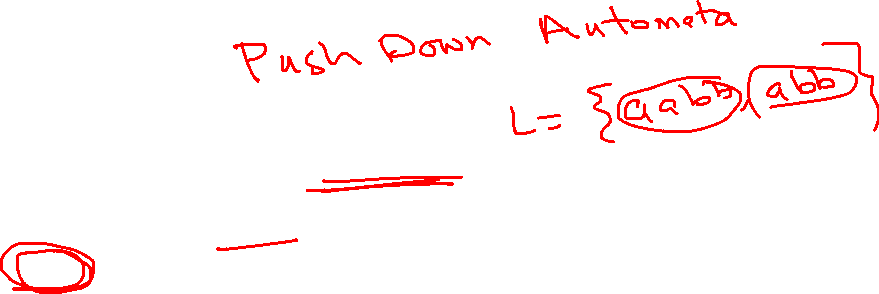 Push Down Autometa
L = {aabb, abb}